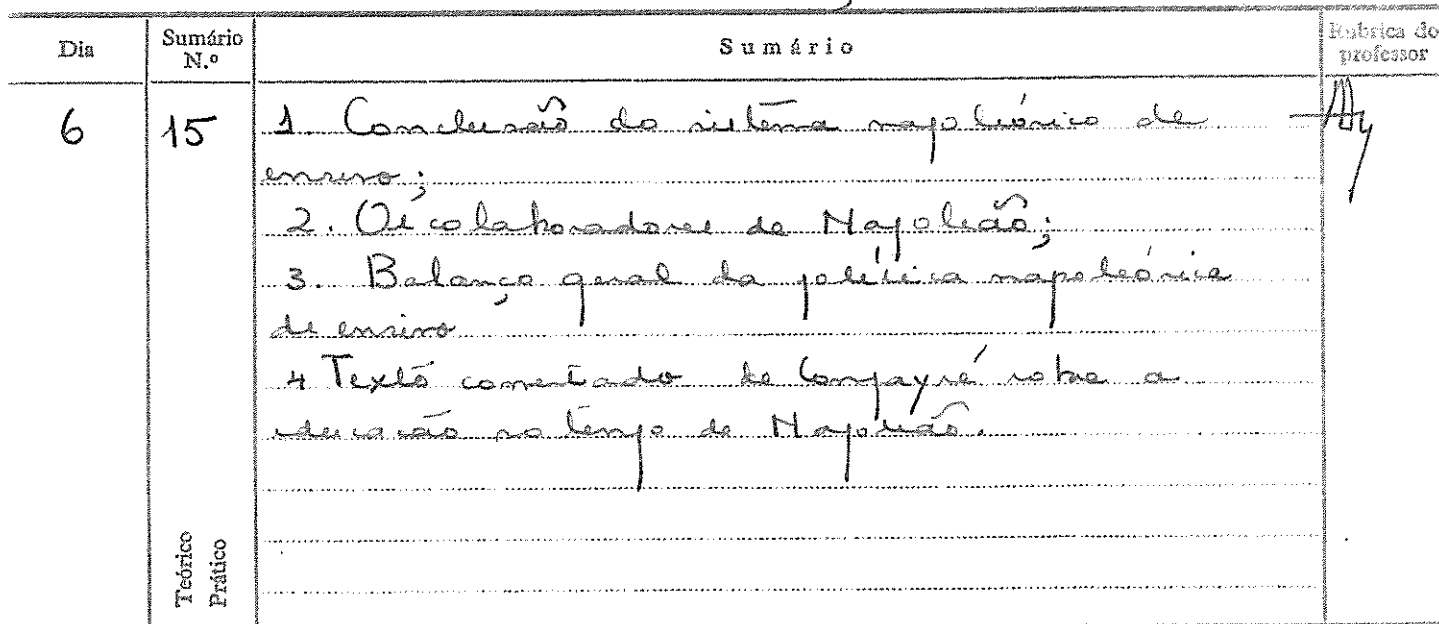 Dia Sumário N.º Sumário Rubrica do professor
6 15 1. Conclusão do sistema napoleónico de
ensino;
2. Os colaboradores de Napoleão;
3. Balanço geral da política napoleónica
de ensino
4 Texto comentado de Compayré sobre a
educação no tempo de Napoleão.
Teórico
Prático